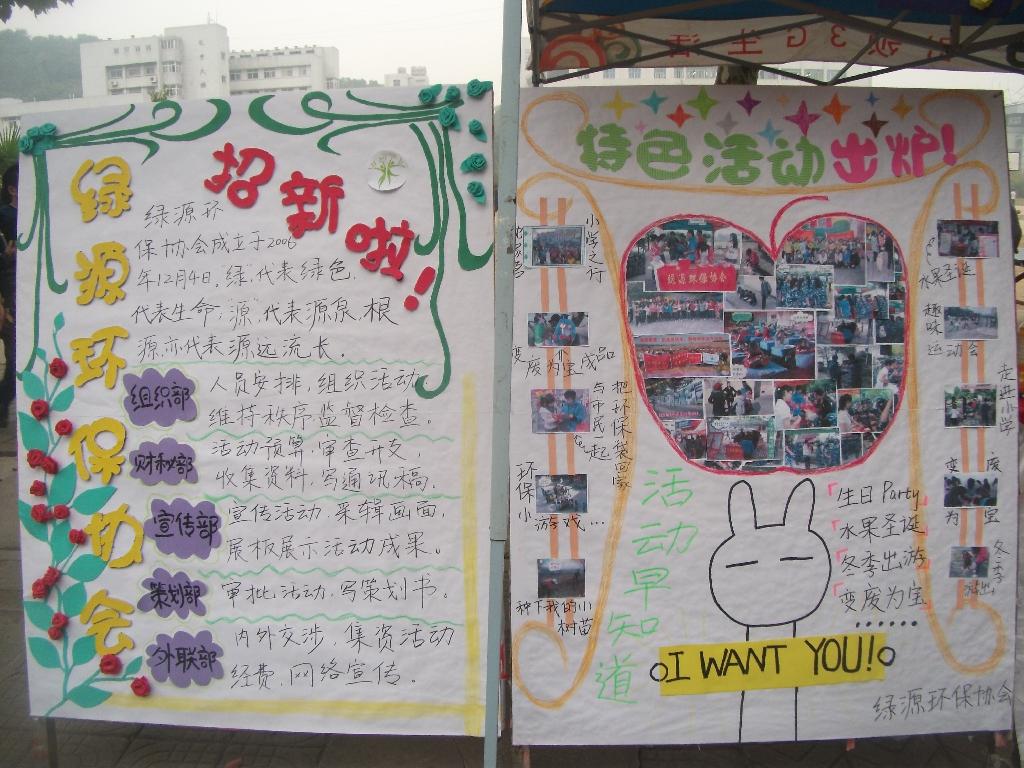 绿源环保协会
招新啦！
绿源环
保协会成立于2006
年12月4日，绿，代表绿色，
代表生命；"源"代表源泉，根
源，亦代表源远流长。
组织部
人员安排，组织活动，
维持秩序，监督检查。
财秘部
活动预算，审查开支，
收集资料，写通讯稿。
宣传部
宣传活动，采辑画面，
展板展示活动成果。
策划部
审批活动，写策划书。
外联部
内外交涉，集资活动
经费，网络宣传。
3G生活
特色活动出炉！
小学之行
变废为宝成品
把环保袋回家
与市民一起
环保小游戏…
种下我的小
树苗
绿源环保协会
水果圣诞
趣味
运动会
走进小学
变废
为宝
冬季
活动早知道
「生日 Party」
「水果圣诞」
「冬季出游」
「变废为宝」
……
I WANT YOU!
绿源环保协会